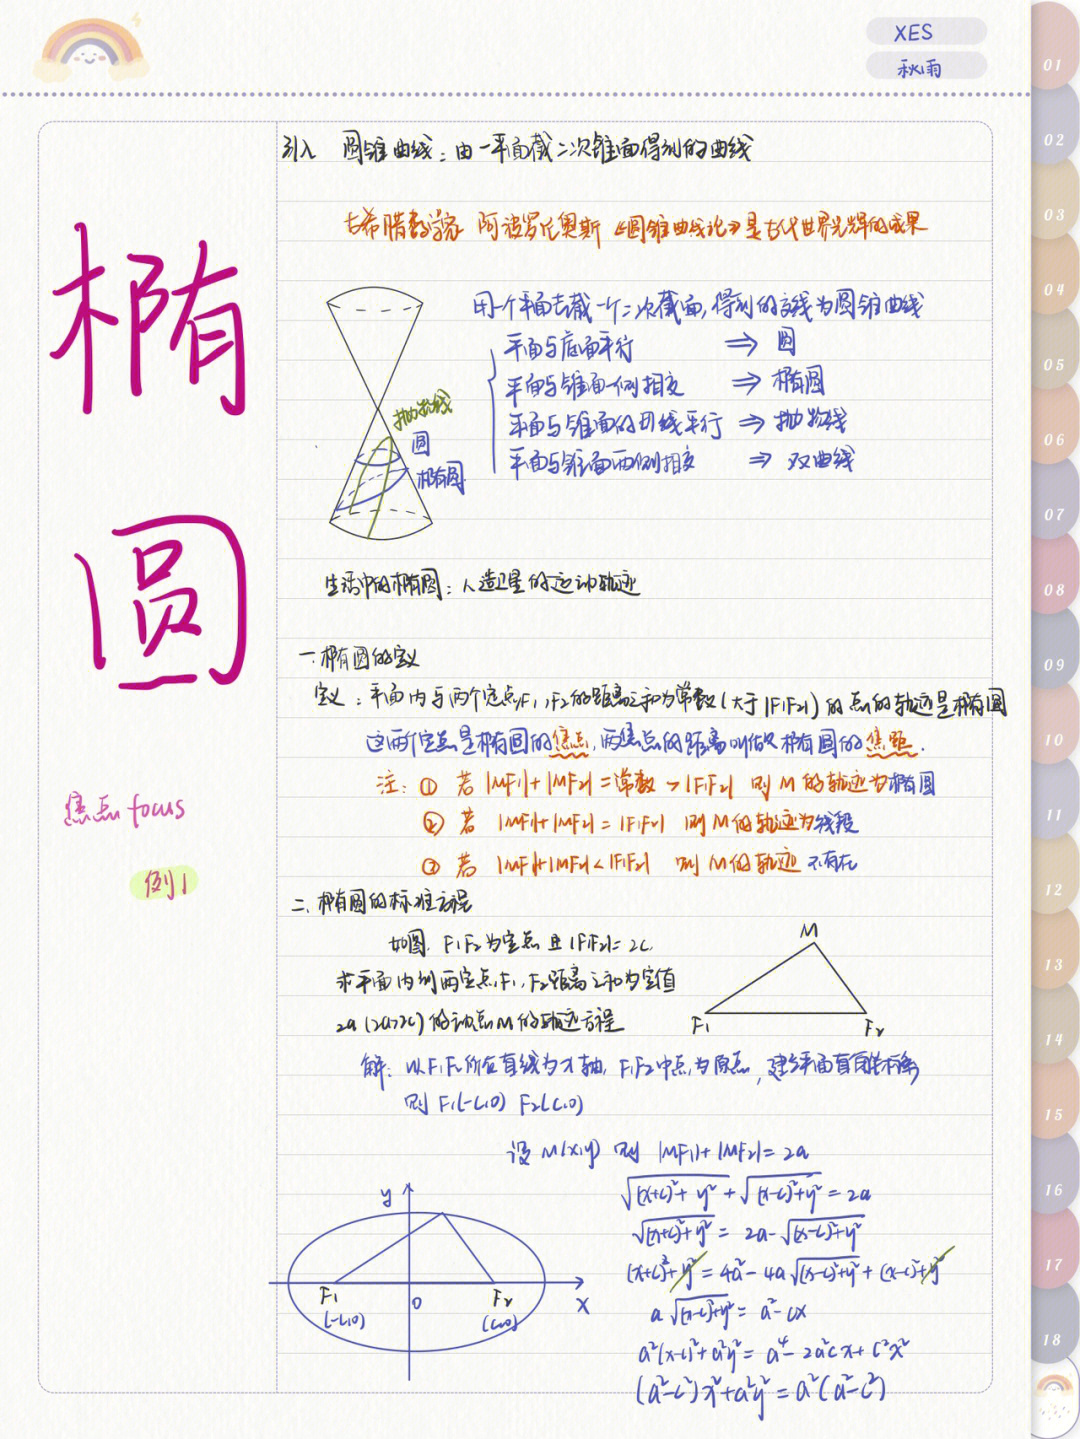 XES
秋雨
椭圆
焦点 focus
例1
引入 圆锥曲线：由一平面截二次锥面得到的曲线
古希腊数学家 阿波罗尼奥斯《圆锥曲线论》是古代世界光辉的成果
用一个平面去截一个二次截面,得到的交线为圆锥曲线
平面与底面平行 ⇒ 圆
平面与锥面一侧相交 ⇒ 椭圆
平面与锥面的母线平行 ⇒ 抛物线
平面与锥面两侧相交 ⇒ 双曲线
抛物线
圆
椭圆
生活中的椭圆：人造卫星的运动轨迹
一.椭圆的定义
定义：平面内与两个定点F₁,F₂的距离之和为常数(大于|F₁F₂|)的点的轨迹是椭圆
这两个定点是椭圆的焦点,两焦点的距离叫做椭圆的焦距.
注：① 若 |MF₁|+|MF₂|=常数>|F₁F₂| 则 M 的轨迹为椭圆
② 若 |MF₁|+|MF₂|=|F₁F₂| 则 M 的轨迹为线段
③ 若 |MF₁|+|MF₂|<|F₁F₂| 则 M 的轨迹不存在
二.椭圆的标准方程
如图. F₁F₂为定点且|F₁F₂|=2c.
求平面内到两定点F₁,F₂距离之和为定值
2a(2a>2c)的动点M的轨迹方程
M
F₁ F₂
解：以F₁F₂所在直线为x轴, F₁F₂中点为原点,建立平面直角坐标系
则 F₁(-c,0) F₂(c,0)
设M(x,y) 则 |MF₁|+|MF₂|=2a
√((x+c)²+y²)+√((x-c)²+y²)=2a
√((x+c)²+y²)=2a-√((x-c)²+y²)
(x+c)²+y²=4a²-4a√((x-c)²+y²)+(x-c)²+y²
a√((x-c)²+y²)=a²-cx
a²(x-c)²+a²y²=a⁴-2a²cx+c²x²
(a²-c²)x²+a²y²=a²(a²-c²)
y
F₁ 0 F₂ x
(-c,0) (c,0)
01
02
03
04
05
06
07
08
09
10
11
12
13
14
15
16
17
18